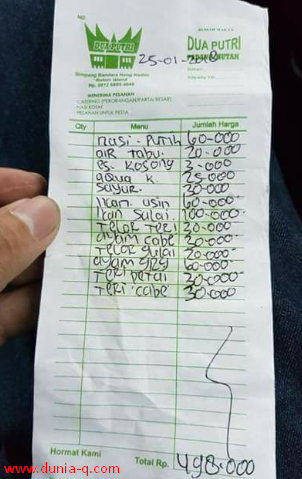 NO.
DUA PUTRI
25-01-2018
DUA PUTRI
Simpang Bandara Hang Nadim
Batam Island
MENERIMA PESANAN
CATERING (PERORANGAN/PARTAI BESAR)
NASI KOTAK
PESANAN UNTUK PESTA
Qty Menu Jumlah Harga
nasi. Putih 60-000
air tabu. 20-000
Ps. kosong 3-000
gawa k. 25-000
Sayur. 30-000
Ikan usin 60-000
Ikan Salai. 100-000
Telor Teri 30-000
ayam cabe 30-000
Telor gulai 20-000
ayam 60-000
Teri Petai 30-000
Teri cabe 30-000
Hormat Kami
Total Rp. 498.000
www.dunia-q.com